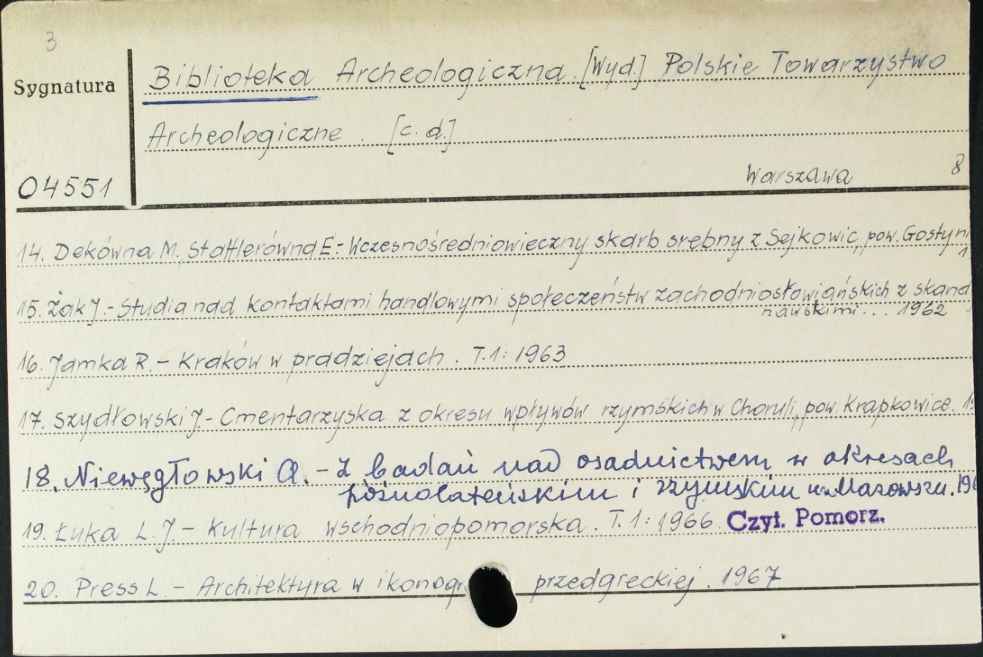 3
Sygnatura
Biblioteka Archeologiczna. [Wyd.] Polskie Towarzystwo
Archeologiczne. [c.d.]
04551
Warszawa 8
14. Dekówna M. Stattlerówna E.- Wczesnośredniowieczny skarb srebny z Sejkowic, pow. Gostyni
15. Żak J.- Studia nad kontaktami handlowymi społeczeństw zachodniosłowiańskich z skand
nawskimi... 1962
16. Jamka R. - Kraków w pradziejach. T.1: 1963
17. Szydłowski J.- Cmentarzyska z okresu wpływów rzymskich w Choruli, pow. Krapkowice.
18. Niewęgłowski A. - Z badań nad osadnictwem w okresach
późnolateńskim i rzymskim na Mazowszu. 196
19. Łuka L. J. - Kultura wschodniopomorska. T.1: 1966 Czyt. Pomorz.
20. Press L. - Architektura w ikonogr przedgreckiej. 1967